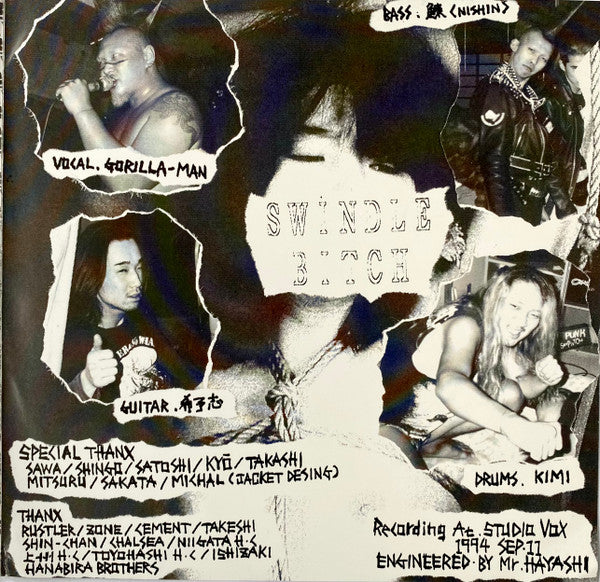 BASS. 鰊 (NISHIN)
VOCAL. GORILLA-MAN
SWINDLE
BITCH
PUNK
GUITAR.
SPECIAL THANX
SAWA/SHINGO/SATOSHI/KYŌ/TAKASHI
MITSURU/SAKATA/MICHAL (JACKET DESING)
DRUMS. KIMI
THANX
RUSTLER/ZONE/CEMENT/TAKESHI
SHIN-CHAN/CHALSEA/NIIGATA H.C
上州 H.C/TOYOHASHI H.C/ISHIZAKI
HANABIRA BROTHERS
Recording At. STUDIO VOX
1994 SEP.11
ENGINEERED.BY Mr.HAYASHI